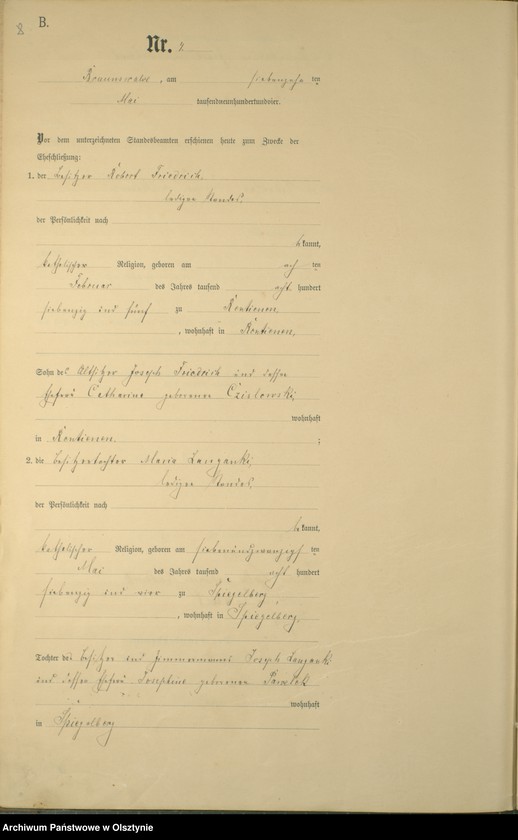 8
B.
Nr. 7
Braunswalde, am siebenzehn ten
Mai tausendneunhundertundvier.
Vor dem unterzeichneten Standesbeamten erschienen heute zum Zwecke der
Eheschließung:
1. der Besitzer Robert Friedrich
ledigen Standes,
der Persönlichkeit nach
bekannt,
katholischer Religion, geboren am ach ten
Februar des Jahres tausend acht hundert
siebenzig und fünf zu Kontienen,
, wohnhaft in Kontienen,
Sohn des Altsitzer Joseph Friedrich und dessen
Ehefrau Catharina geborenen
wohnhaft
in Kontienen. ;
2. die Besitzertochter Maria Langanki,
ledigen Standes,
der Persönlichkeit nach
bekannt,
katholischer Religion, geboren am siebenundzwanzigs ten
Mai des Jahres tausend acht hundert
siebenzig und vier zu Spiegelberg
, wohnhaft in Spiegelberg,
Tochter des Besitzer und Zimmermanns Joseph Langanki
und dessen Ehefrau Josephine geborenen
wohnhaft
in Spiegelberg
Archiwum Państwowe w Olsztynie